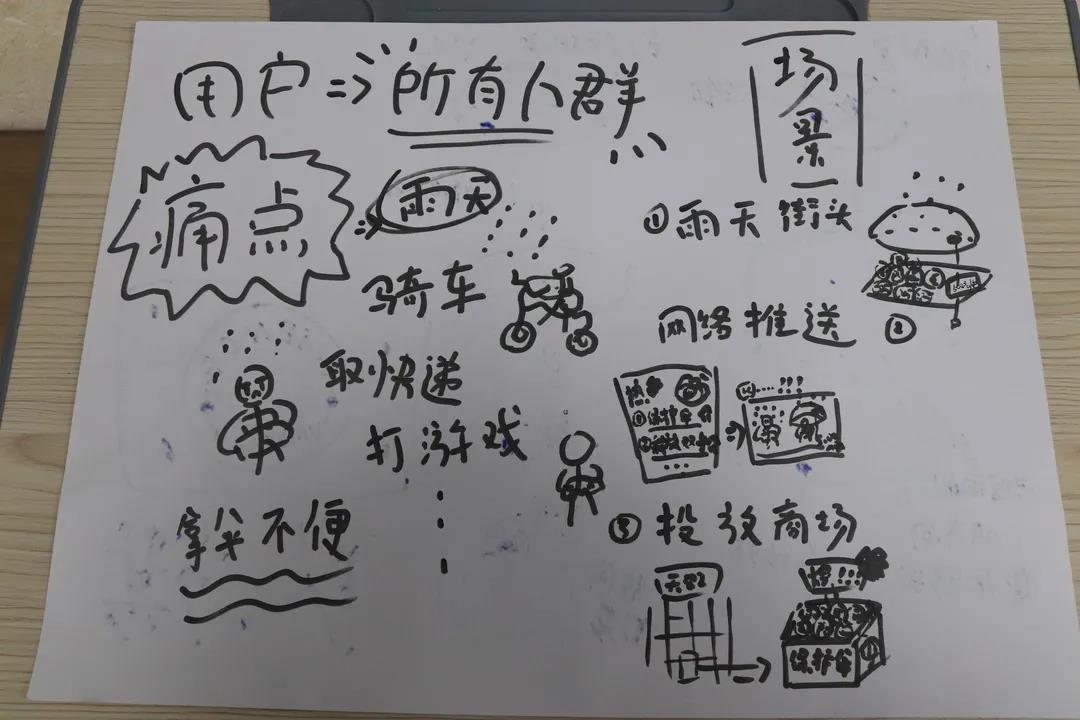 用户⇒所有人群
痛点
雨天
骑车
取快递
打游戏
拿伞不便
场景
① 雨天街头
② 网络推送
③ 投放商场
保护伞